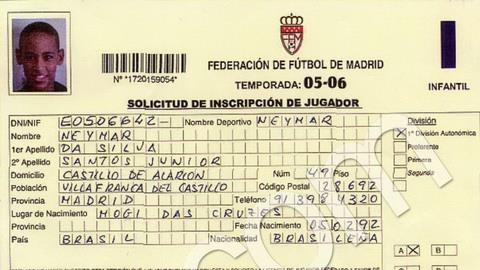 FEDERACIÓN DE FÚTBOL DE MADRID
TEMPORADA: 05-06
Nº *1720159054*
INFANTIL
SOLICITUD DE INSCRIPCIÓN DE JUGADOR
DNI/NIF E0506642- Nombre Deportivo NEYMAR División
Nombre NEYMAR X 1ª División Autonómica
1er Apellido DA SILVA Preferente
2º Apellido SANTOS JUNIOR Primera
Domicilio CASTILLO DE ALARCON Núm 49 Piso Segunda
Población VILLAFRANCA DEL CASTILLO Código Postal 28692
Provincia MADRID Teléfono 913984320
Lugar de Nacimiento MOGI DAS CRUZES
Provincia Fecha Nacimiento 050292
País BRASIL Nacionalidad BRASILEÑA
A X B
.com